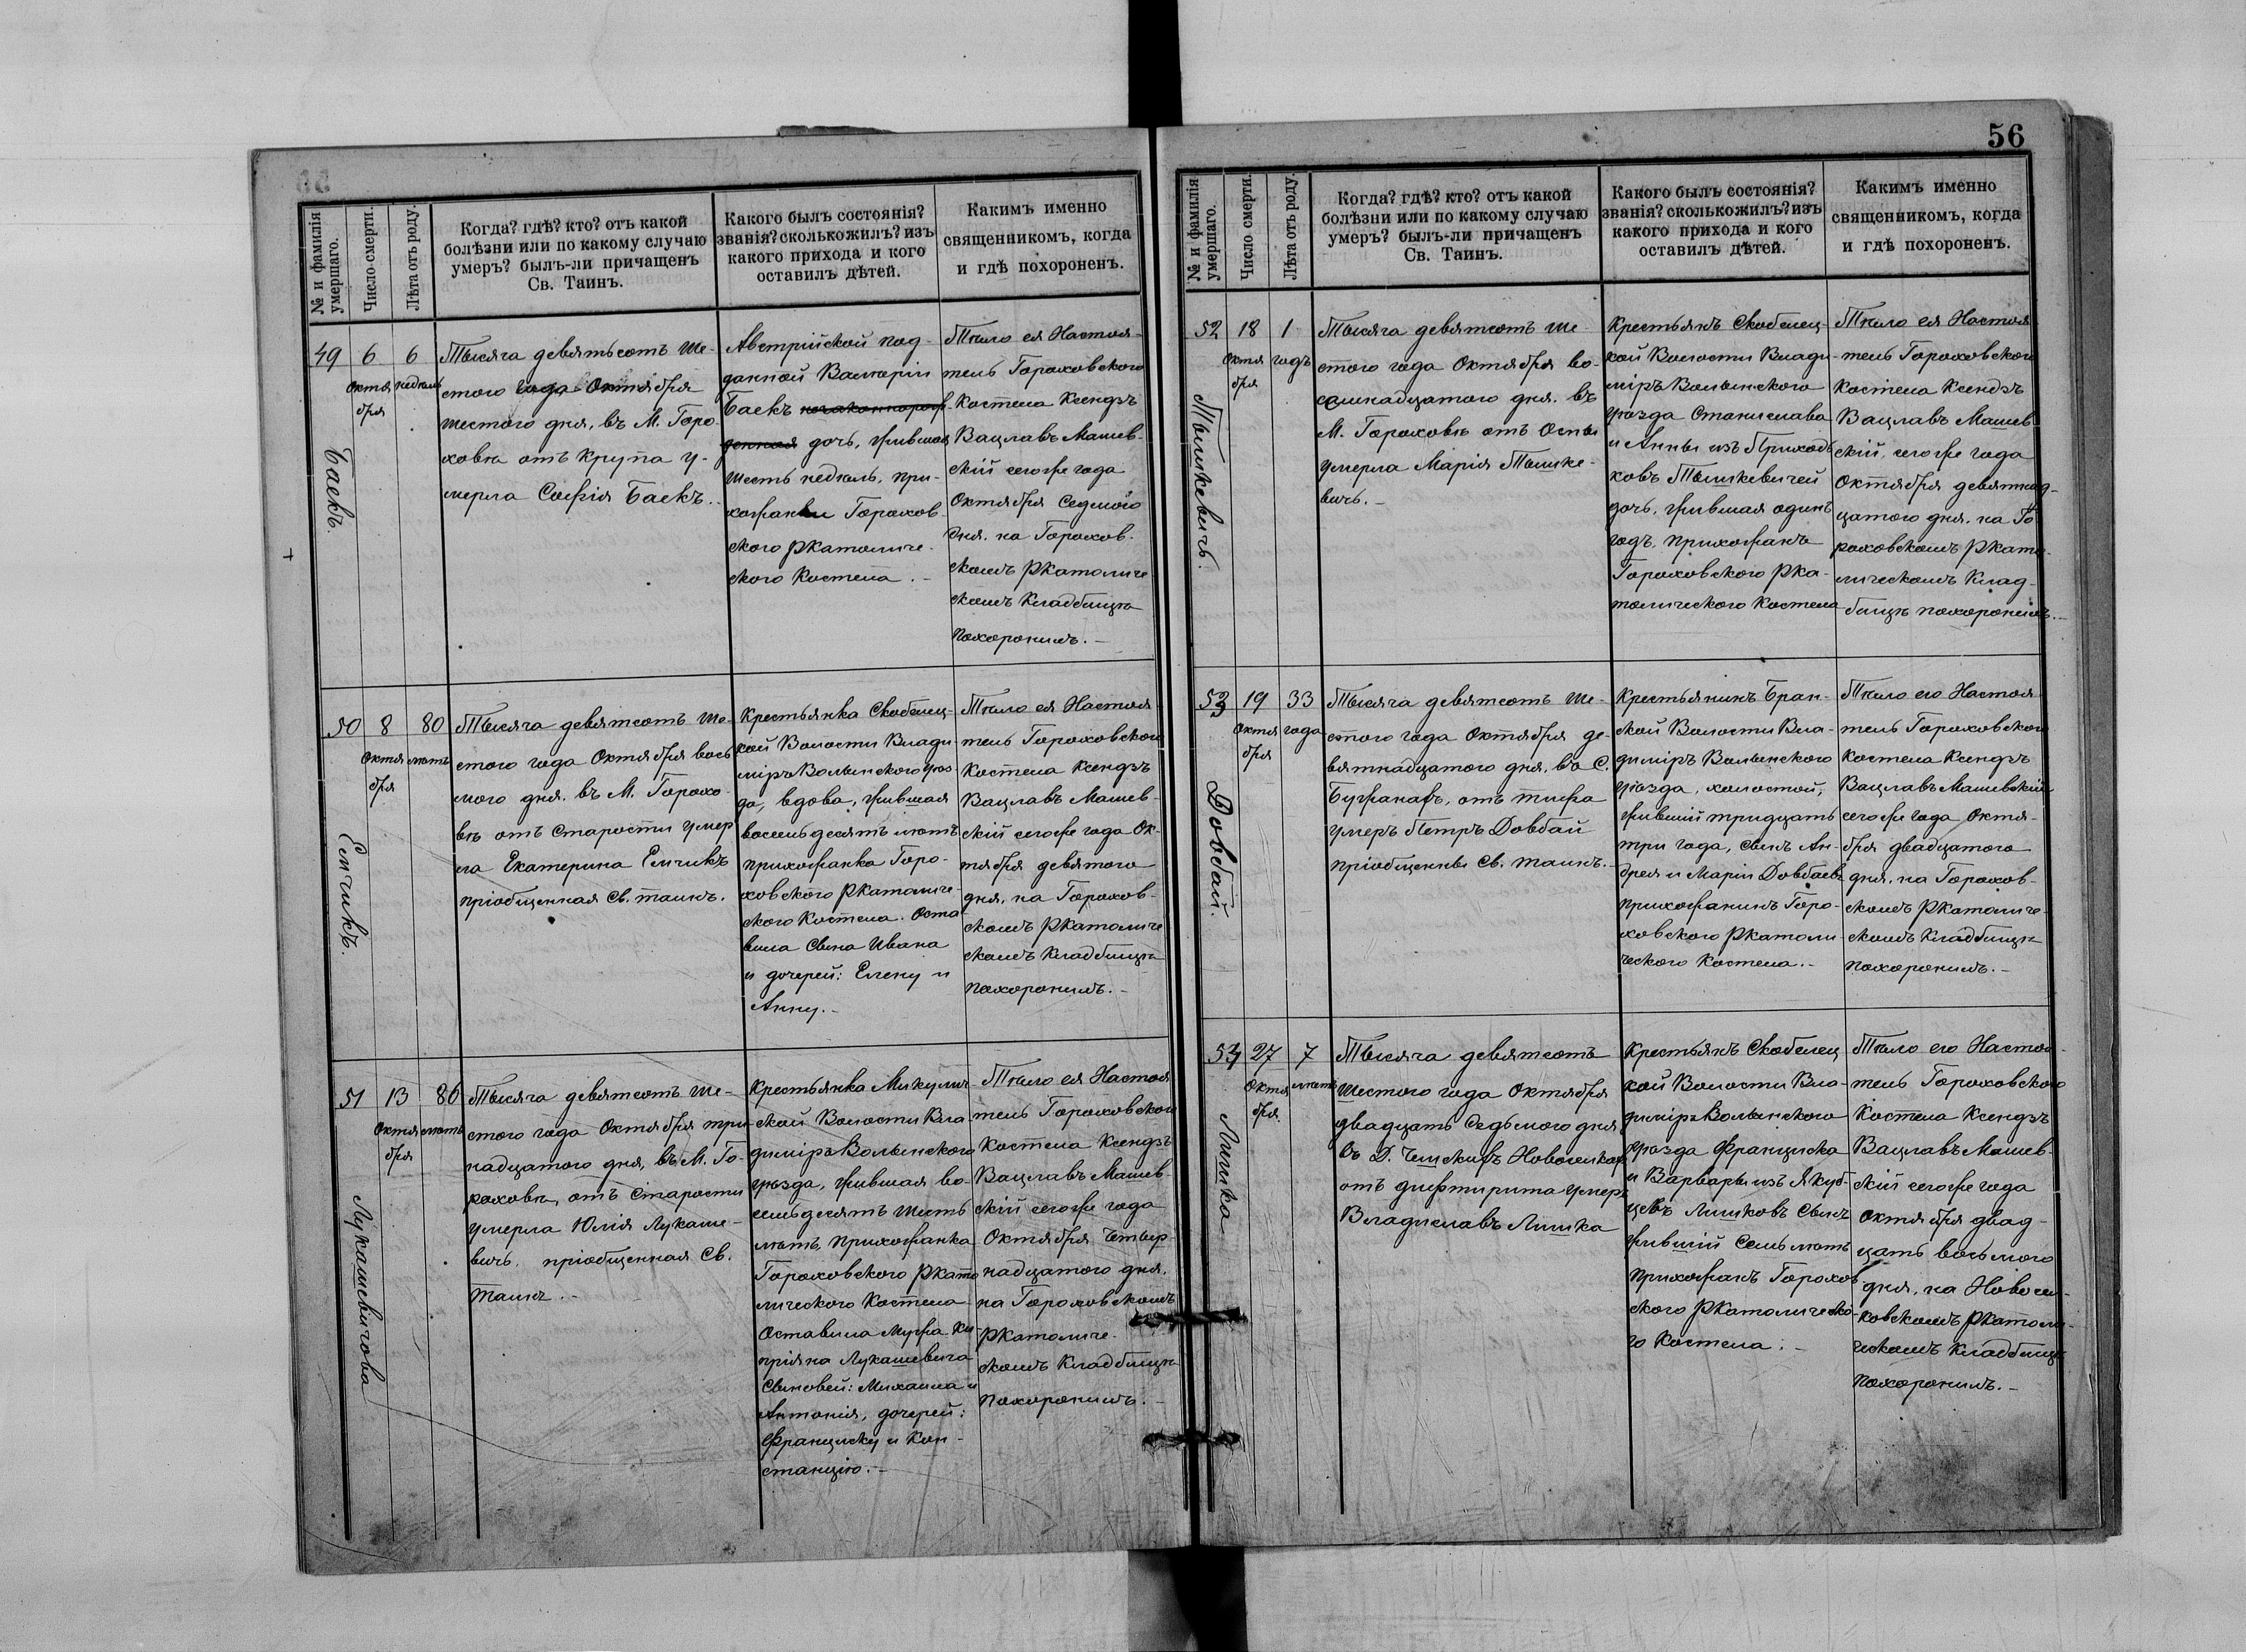 56
№ и фамилія
умершаго.
Число смерти.
Лѣта отъ роду.
Когда? гдѣ? кто? отъ какой
болѣзни или по какому случаю
умеръ? былъ-ли причащенъ
Св. Таинъ.
Какого былъ состоянія?
званія? сколько жилъ? изъ
какого прихода и кого
оставилъ дѣтей.
Какимъ именно
священникомъ, когда
и гдѣ похороненъ.
49
Баекъ.
6
Октя
бря
6
недѣль
Тысяча девятьсотъ ше-
стого года Октября
шестого дня, въ М. Горо-
ховѣ отъ крупа у-
мерла Софія Баекъ.
Австрійской под-
данной Валеріи
Баекъ
дочь, жившая
шесть недѣль, при-
хожанки Горохов-
ского Ркатоличе-
ского Костела.
Тѣло ея Настоя-
тель Гороховского
Костела Ксендзъ
Вацлавъ Машев-
скій сегоже года
Октября Седмого
дня, на Горохов-
скомъ Ркатоличе
скомъ Кладбищѣ
похоронилъ.
50
Емчикъ.
8
Октя
бря
80
лѣтъ
Тысяча девятсотъ ше-
стого года Октября вось
мого дня, въ М. Горохо-
вѣ отъ старости умер
ла Екатерина Емчикъ
пріобщенная Св. таинъ.
Крестьянка Скобелец-
кой Волости Влади-
міръ Волынского уѣз-
да, вдова, жившая
восемьдесятъ лѣтъ
прихожанка Горо-
ховского Ркатоличе-
ского Костела. Оста
вила сына Ивана
и дочерей: Елену и
Анну.
Тѣло ея Настоя
тель Гороховского
Костела Ксендзъ
Вацлавъ Машев-
скій сегоже года Ок-
тября девятого
дня, на Горохов-
скомъ Ркатоличе
скомъ Кладбищѣ
похоронилъ.
51
Лукашевичова
13
Октя
бря
86
лѣтъ
Тысяча девятсотъ ше-
стого года Октября три
надцатого дня, въ М. Го-
роховѣ, отъ старости
умерла Юлія Лукаше-
вичъ, пріобщенная Св.
таинъ.
Крестьянка Микулич-
ской Волости Вла-
диміръ Волынского
уѣзда, жившая во-
семьдесятъ шесть
лѣтъ, прихожанка
Гороховского Ркато
лического Костела
Оставила мужа Ки-
пріяна Лукашевича
сыновей: Михаила и
Антонія, дочерей:
Франциску и Кон-
станцію.
Тѣло ея Настоя
тель Гороховского
Костела Ксендзъ
Вацлавъ Машев-
скій сегоже года
Октября Четыр
надцатого дня,
на Гороховскомъ
Ркатоличе-
скомъ Кладбищѣ
похоронилъ.
№ и фамилія
умершаго.
Число смерти.
Лѣта отъ роду.
Когда? гдѣ? кто? отъ какой
болѣзни или по какому случаю
умеръ? былъ-ли причащенъ
Св. Таинъ.
Какого былъ состоянія?
званія? сколько жилъ? изъ
какого прихода и кого
оставилъ дѣтей.
Какимъ именно
священникомъ, когда
и гдѣ похороненъ.
52
Тышкевичъ.
18
Октя
бря
1
годъ
Тысяча девятсотъ ше-
стого года Октября во-
семнадцатого дня, въ
М. Гороховѣ отъ Оспы
умерла Марія Тышке-
вичъ.
Крестьянъ Скобелец-
кой Волости Влади-
міръ Волынского
уѣзда Станислава
и Анны изъ
Тышкевичей
дочь, жившая одинъ
годъ, прихожанъ
Гороховского Рка-
толического Костела
Тѣло ея Настоя
тель Гороховского
Костела Ксендзъ
Вацлавъ Машев
скій, сегоже года
Октября девятнад-
цатого дня, на Го
роховскомъ Ркато-
лическомъ Клад-
бищѣ похоронилъ.
53
Довбай.
19
Октя
бря
33
года
Тысяча девятсотъ ше-
стого года Октября де-
вятнадцатого дня, въ С.
Бужанахъ, отъ тифа
умеръ Петръ Довбай
пріобщенны Св. таинъ.
Крестьянинъ Бран-
ской Волости Вла-
диміръ Волынского
уѣзда, холостой,
жившій тридцать
три года, сынъ Ан-
дрея и Маріи Довбаевъ
прихожанинъ Горо-
ховского Ркатоли
ческого Костела.
Тѣло его Настоя
тель Гороховского
Костела Ксендзъ
Вацлавъ Машевскій
сегоже года Октя-
бря двадцатого
дня, на Горохов-
скомъ Ркатоличе-
скомъ Кладбищѣ
похоронилъ.
54
Лишка
27
Октя
бря
7
лѣтъ
Тысяча девятсотъ
шестого года Октября
двадцать седьмого дня
въ Д.
отъ дифтирита умеръ
Владиславъ Лишка
Крестьянъ Скобелец
кой Волости Вла-
диміръ Волынского
уѣзда Франциска
и Варвары изъ Якуб-
Лишковъ сынъ
жившій семь лѣтъ
прихожанъ Горохов
ского Ркатолическо-
го Костела.
Тѣло его Настоя-
тель Гороховского
Костела Ксендзъ
Вацлавъ Машев-
скій сегоже года
Октября двад-
цать восьмого
дня, на Новосел-
ковскомъ Ркатоли-
ческомъ Кладбищѣ
похоронилъ.